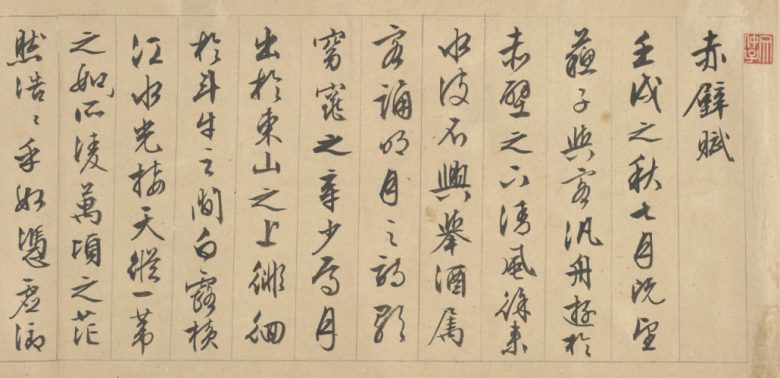 赤壁賦
壬戌之秋七月既望
蘇子與客汎舟遊於
赤壁之下清風徐來
水波不興舉酒屬
客誦明月之詩歌
窈窕之章少焉月
出於東山之上徘徊
於斗牛之間白露橫
江水光接天縱一葦
之如所凌萬頃之茫
然浩〻乎如憑虛御